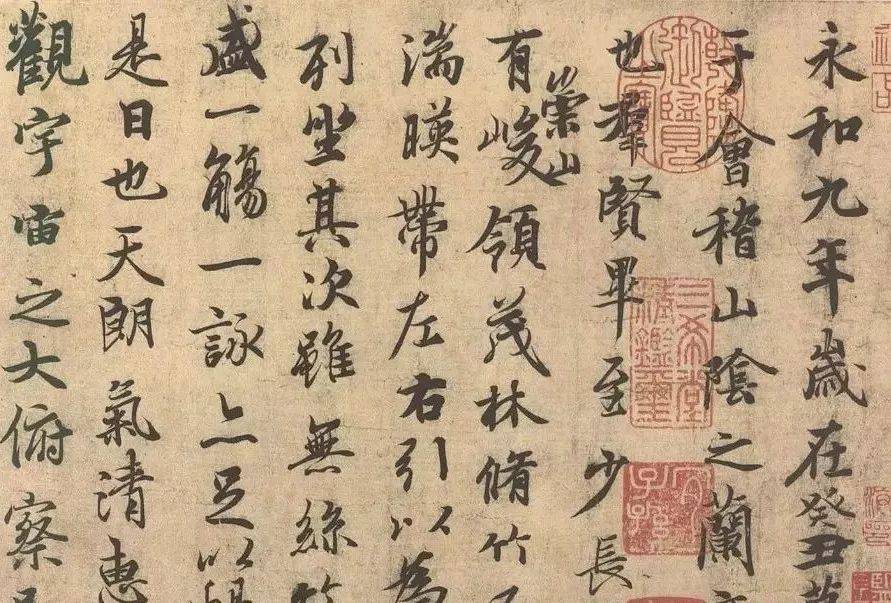 永和九年歲在癸丑暮
于會稽山陰之蘭亭
也羣賢畢至少長
有崇山峻領茂林脩竹又
湍暎帶左右引以為
列坐其次雖無絲竹
盛一觴一詠亦足以暢
是日也天朗氣清惠
觀宇宙之大俯察品
三希堂